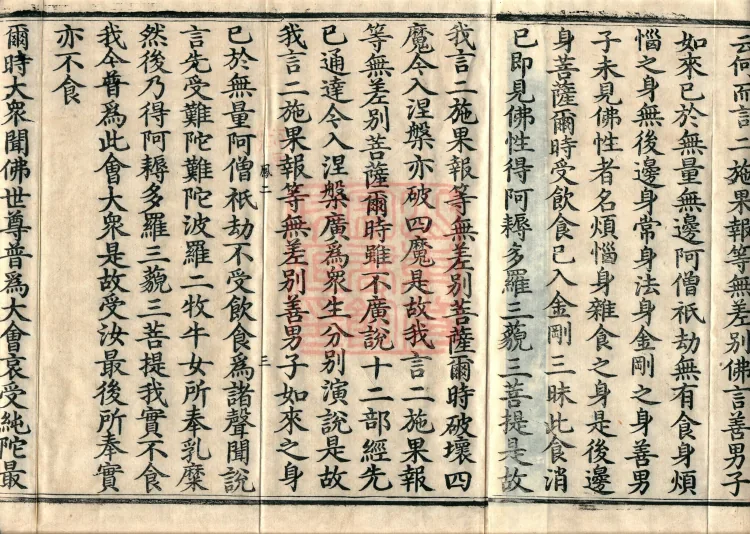 云何而言二施果報等無差別佛言善男子
如來已於無量無邊阿僧祇劫無有食身煩
惱之身無後邊身常身法身金剛之身善男
子未見佛性者名煩惱身雜食之身是後邊
身菩薩爾時受飲食已入金剛三昧此食消
已即見佛性得阿耨多羅三藐三菩提是故
我言二施果報等無差別菩薩爾時破壞四
魔今入涅槃亦破四魔是故我言二施果報
等無差別菩薩爾時雖不廣說十二部經先
已通達今入涅槃廣爲衆生分別演說是故
我言二施果報等無差別善男子如來之身
鳳二 三
已於無量阿僧祇劫不受飲食爲諸聲聞說
言先受難陀難陀波羅二牧牛女所奉乳糜
然後乃得阿耨多羅三藐三菩提我實不食
我今普爲此會大衆是故受汝最後所奉實
亦不食
爾時大衆聞佛世尊普爲大會哀受純陀最